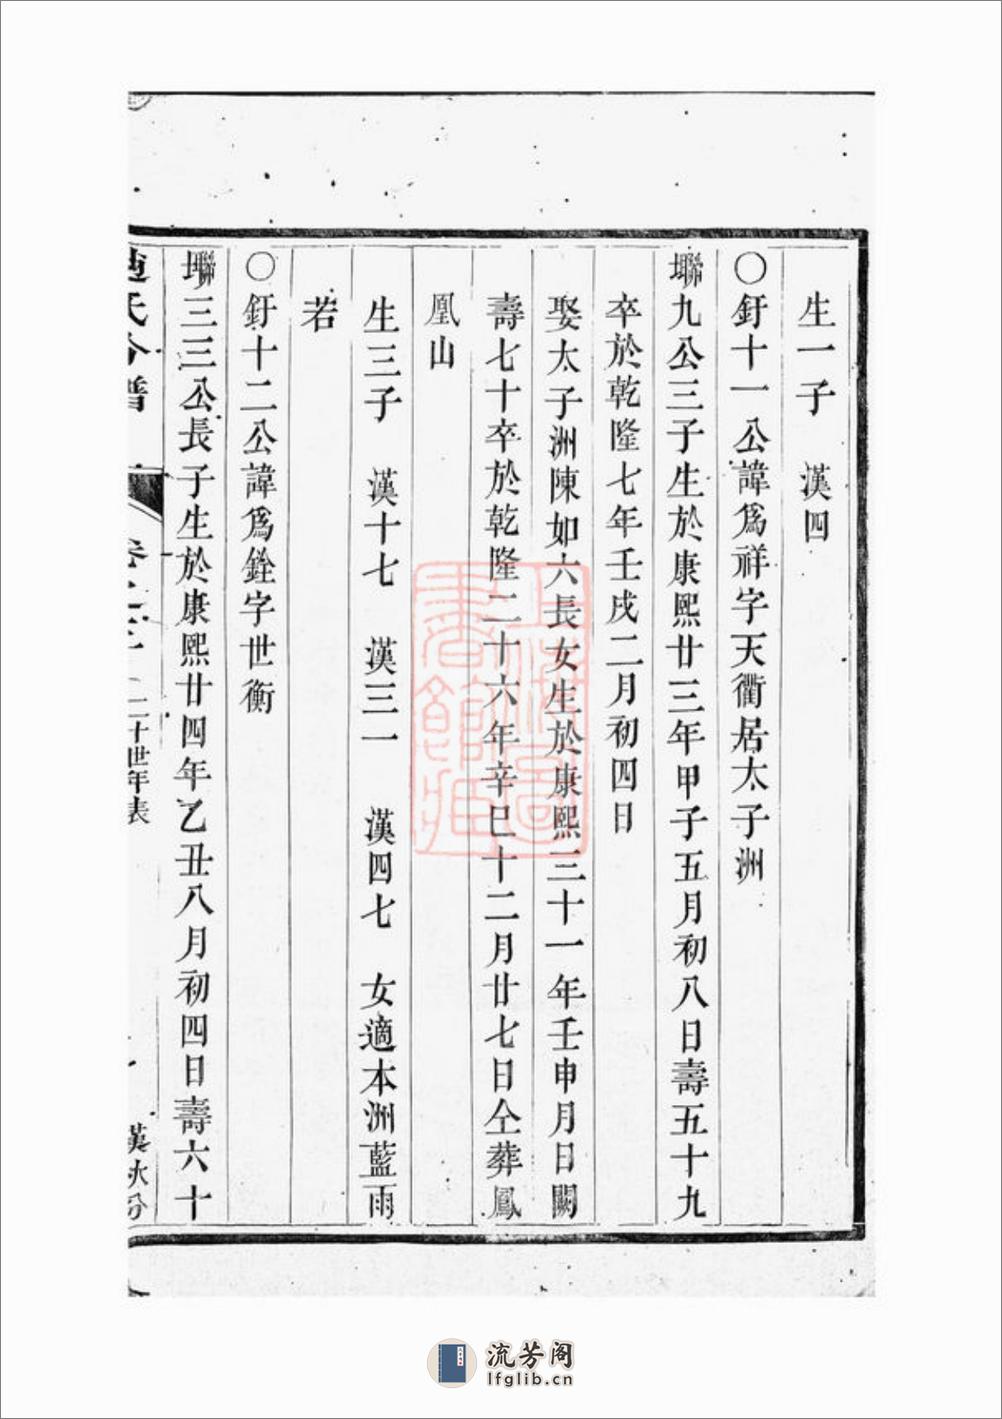 生一子　漢四
〇釪十一公諱爲祥字天衢居太子洲
聯九公三子生於康熙廿三年甲子五月初八日壽五十九
卒於乾隆七年壬戌二月初四日
娶太子洲陳如六長女生於康熙三十一年壬申月日闕
壽七十卒於乾隆二十六年辛巳十二月廿七日仝葬鳳
凰山
生三子　漢十七　漢三一　漢四七　女適本洲藍雨
若
〇釪十二公諱爲銓字世衡
聯三三公長子生於康熙廿四年乙丑八月初四日壽六十
氏分譜
二十世年表
漢
流芳阁
lfglib.cn